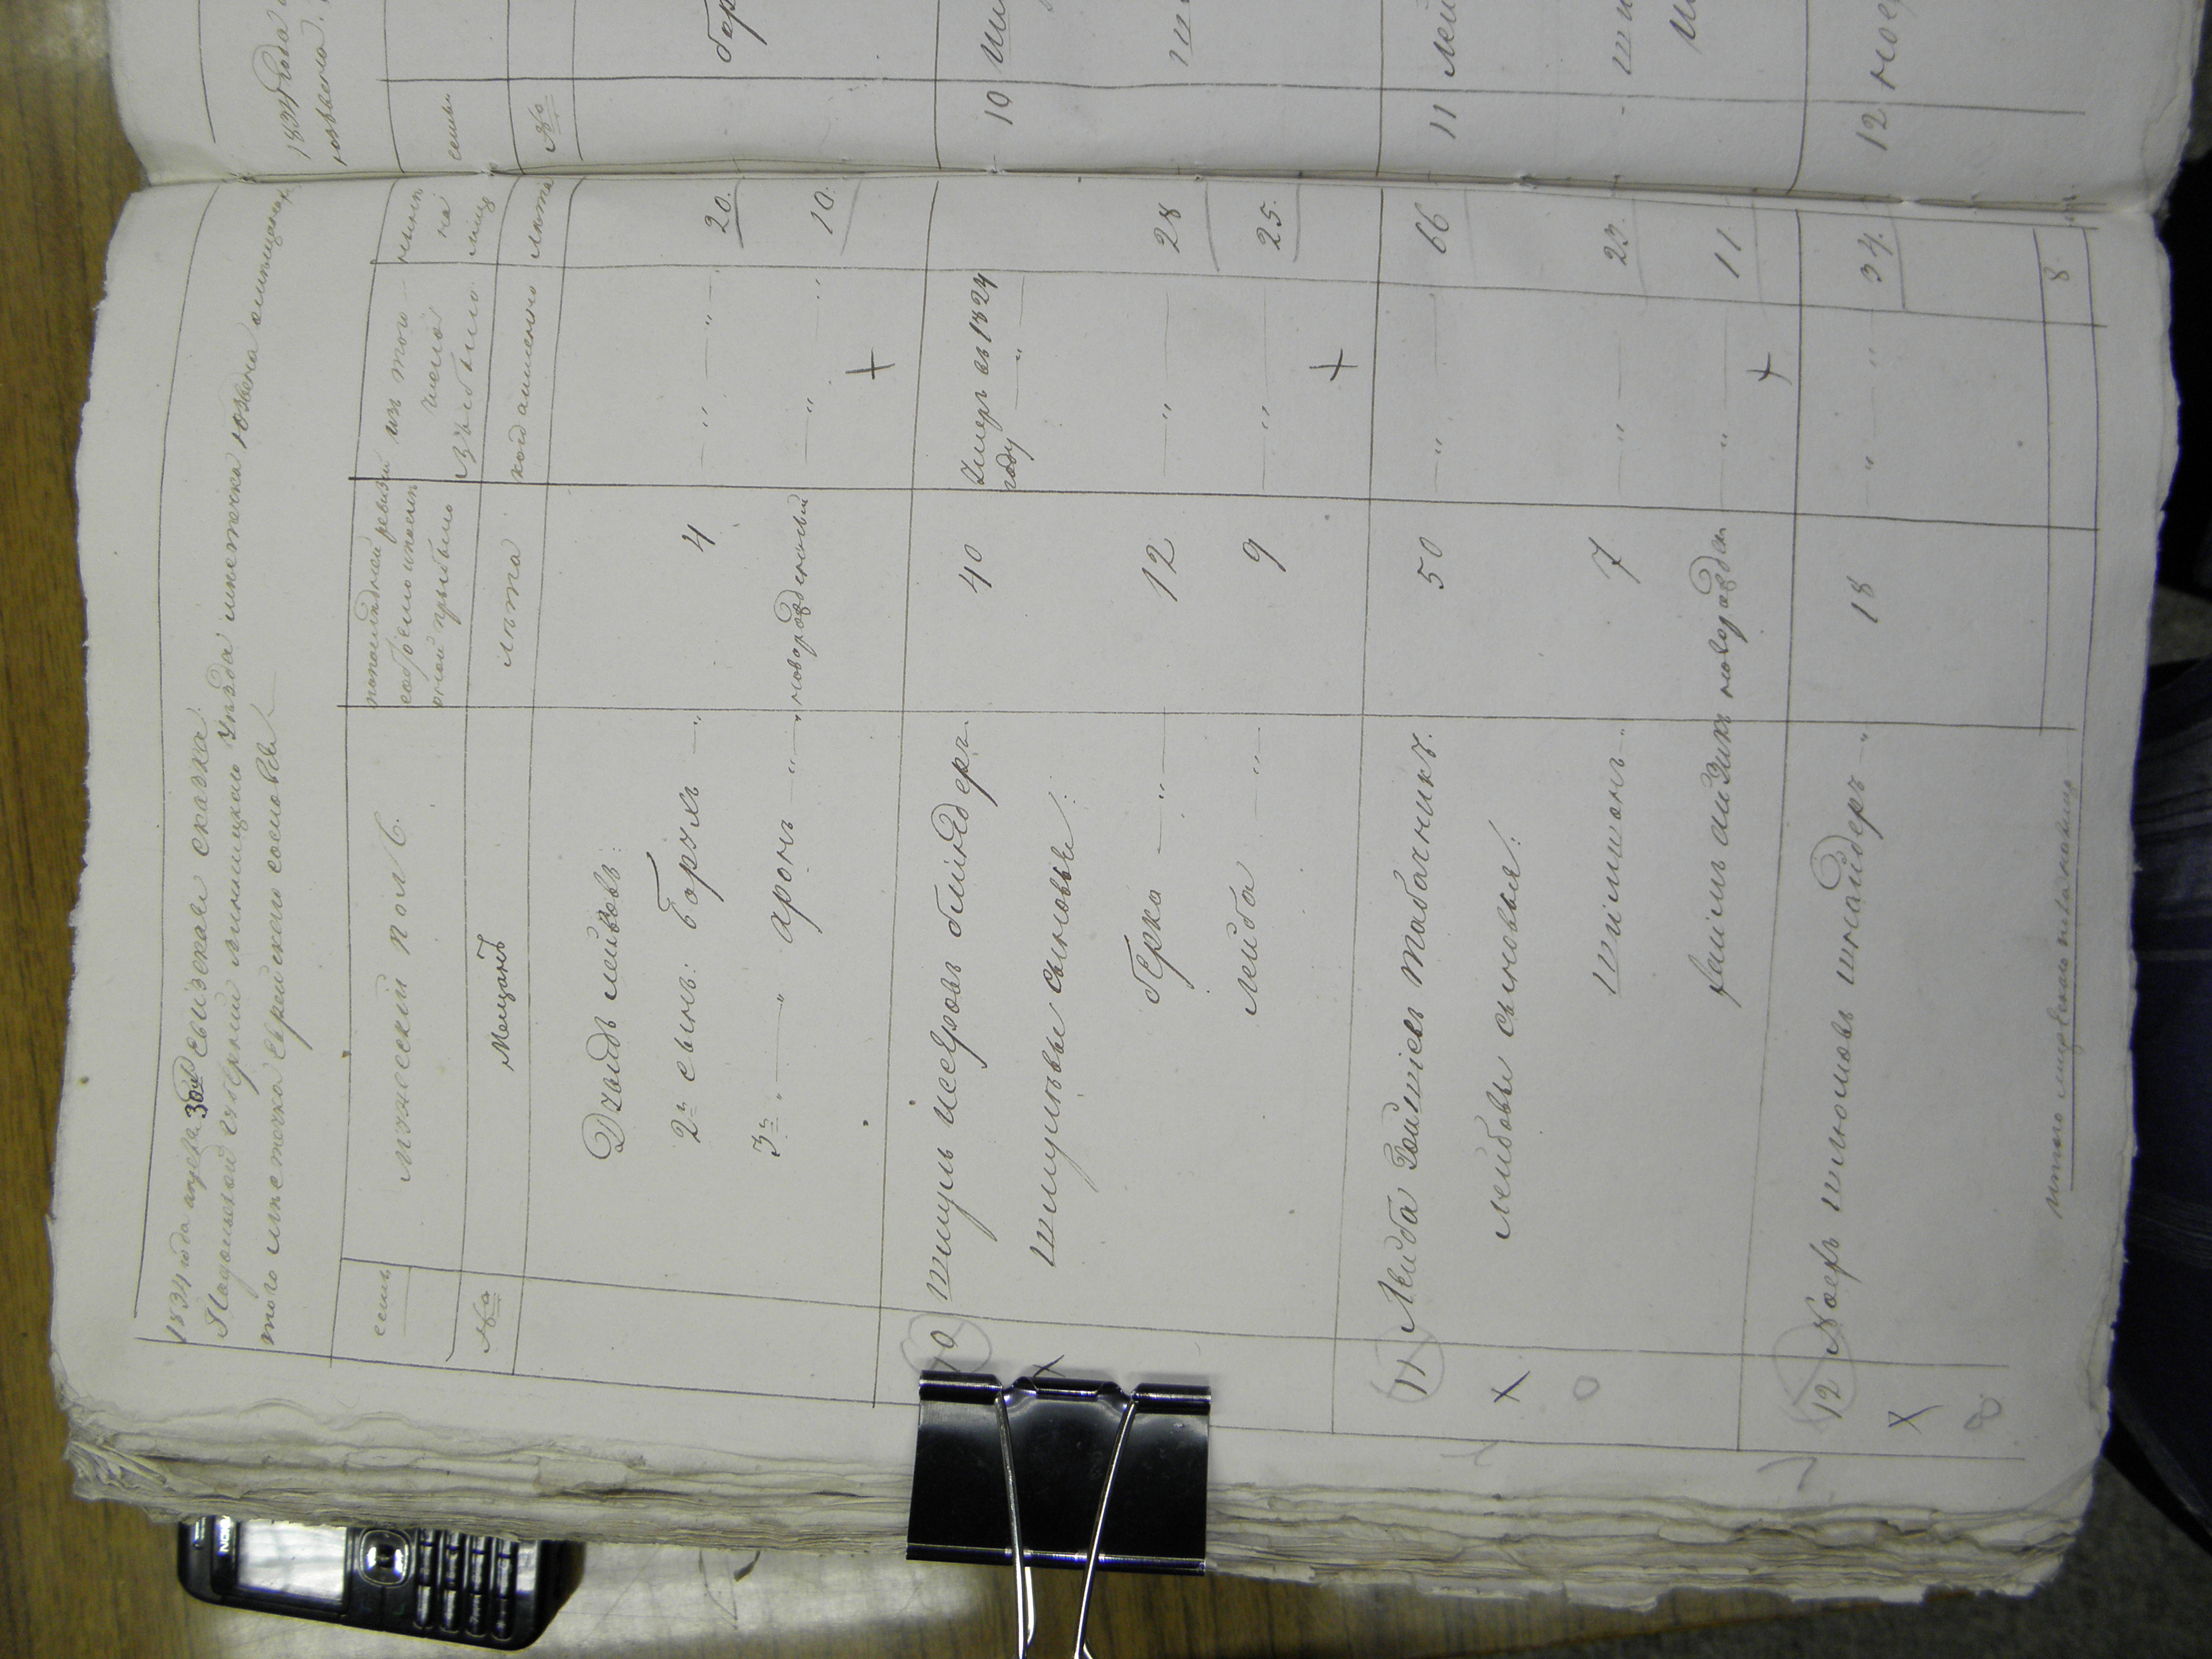 1834 года апреля 30 дня Ревизская сказка.
Подольской губернии Винницкого Уезда местечка Юзвена о мещанах
того местечка Еврейского сословія
семьи
мужеской полъ.
по последней ревизіи состояло и после оной прибыло
изъ того числа выбыло
ныне на лицо
№
Мещанъ
лета
когда именно
лета
Дувидъ Лейбовъ:
2й сынъ: Борухъ 4 " " 20.
3й " Аронъ " новорожденный " " 10.
10 Шмуль Исеровъ Блиндеръ 40 Умеръ въ 1824 году "
Шмулевы сыновья:
Берка " 12 " 28
Лейба " 9 " 25.
11 Лейба Табачникъ. 50 " 66
Лейбовы сыновья:
Шлима " 7 " 23.
Айзикъ новорожден " 11.
12 Шлюмовъ Шнайдеръ " 18 " " 34.
итого мужеска пола налицо 8
1834 года
Юзвена
семьи
№
10
11 Лей
12